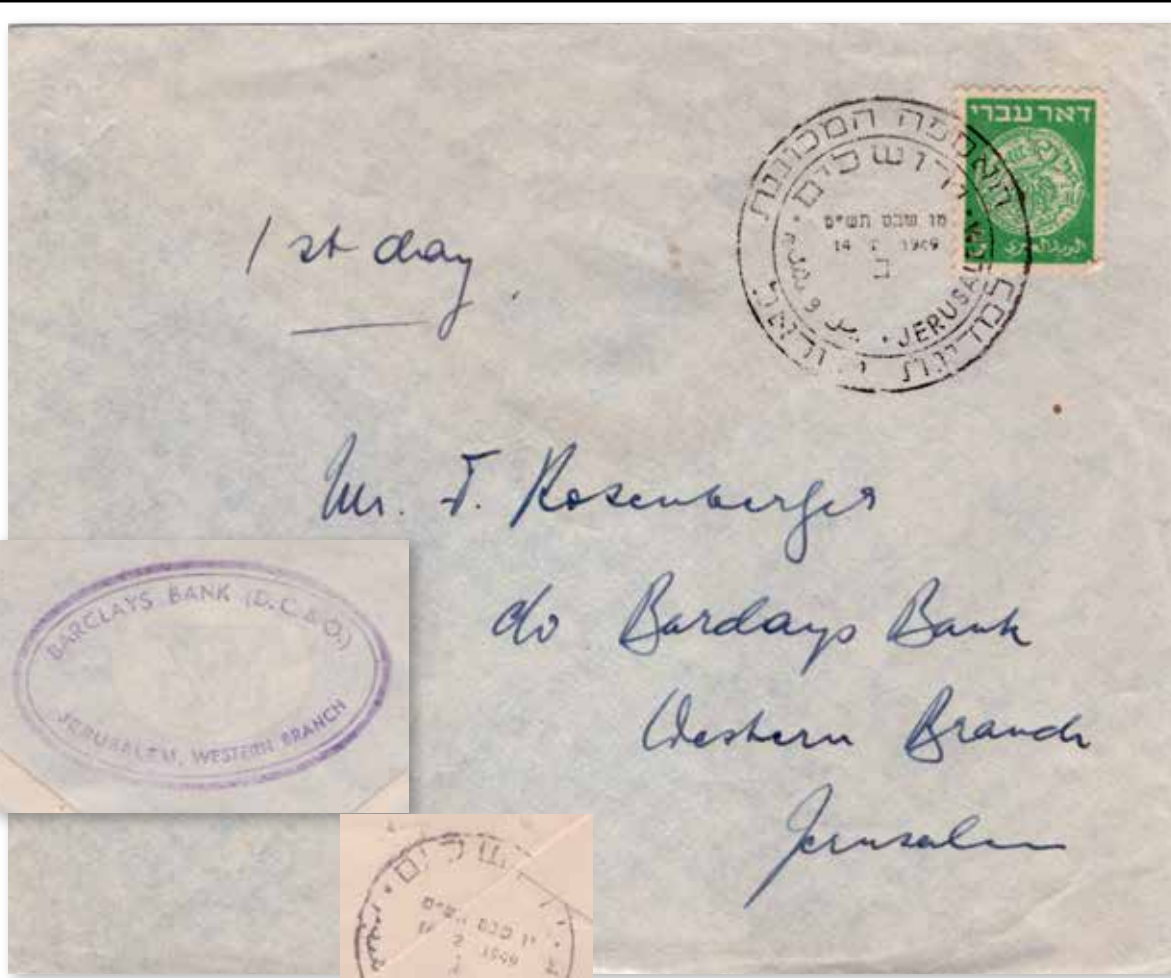 דאר עברי
האספה המכוננת
ירושלים
טו שבט תש״ט
14 2 1949
JERUSALEM
למדינת ישראל
1st day.
Mr. F. Rosenberger
c/o Barclays Bank
Western Branch
Jerusalem
BARCLAYS BANK (D.C.&O.)
JERUSALEM, WESTERN BRANCH
2 1949